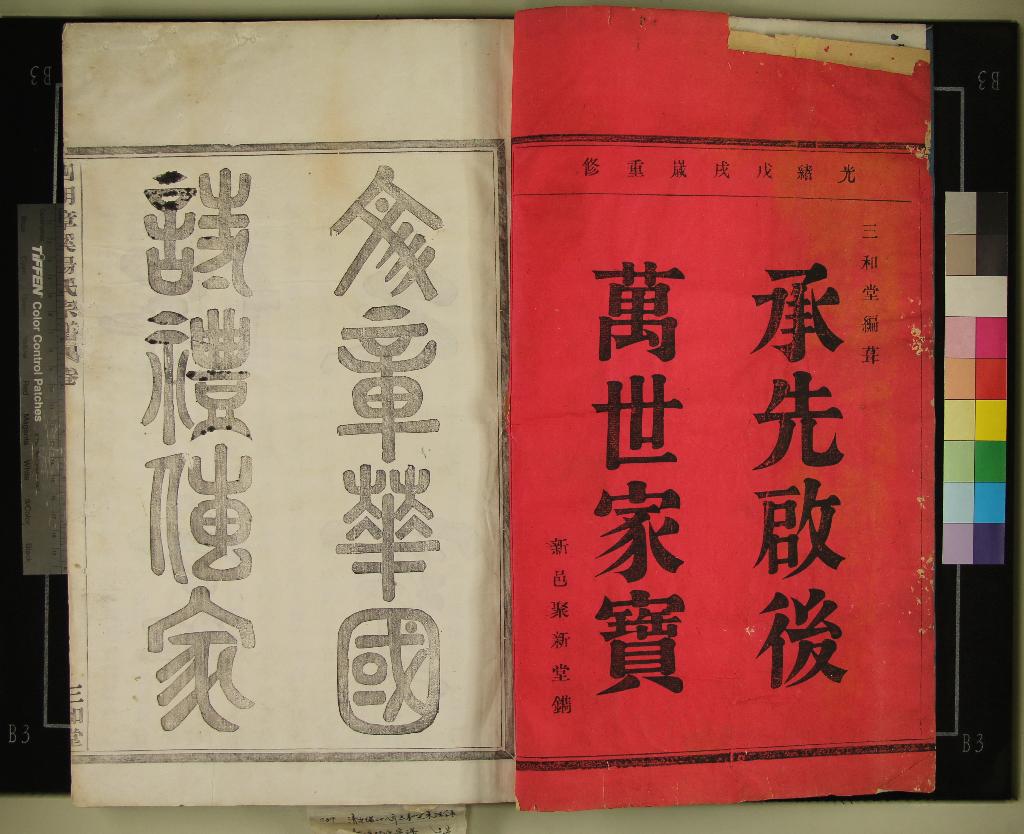 光緒戊戌歲重修
三和堂編葺
承先啟後
萬世家寶
新邑聚新堂鐫
文章華國
詩禮傳家
三和堂
TIFFEN Color Control Patches
B3
B3
B3
B3